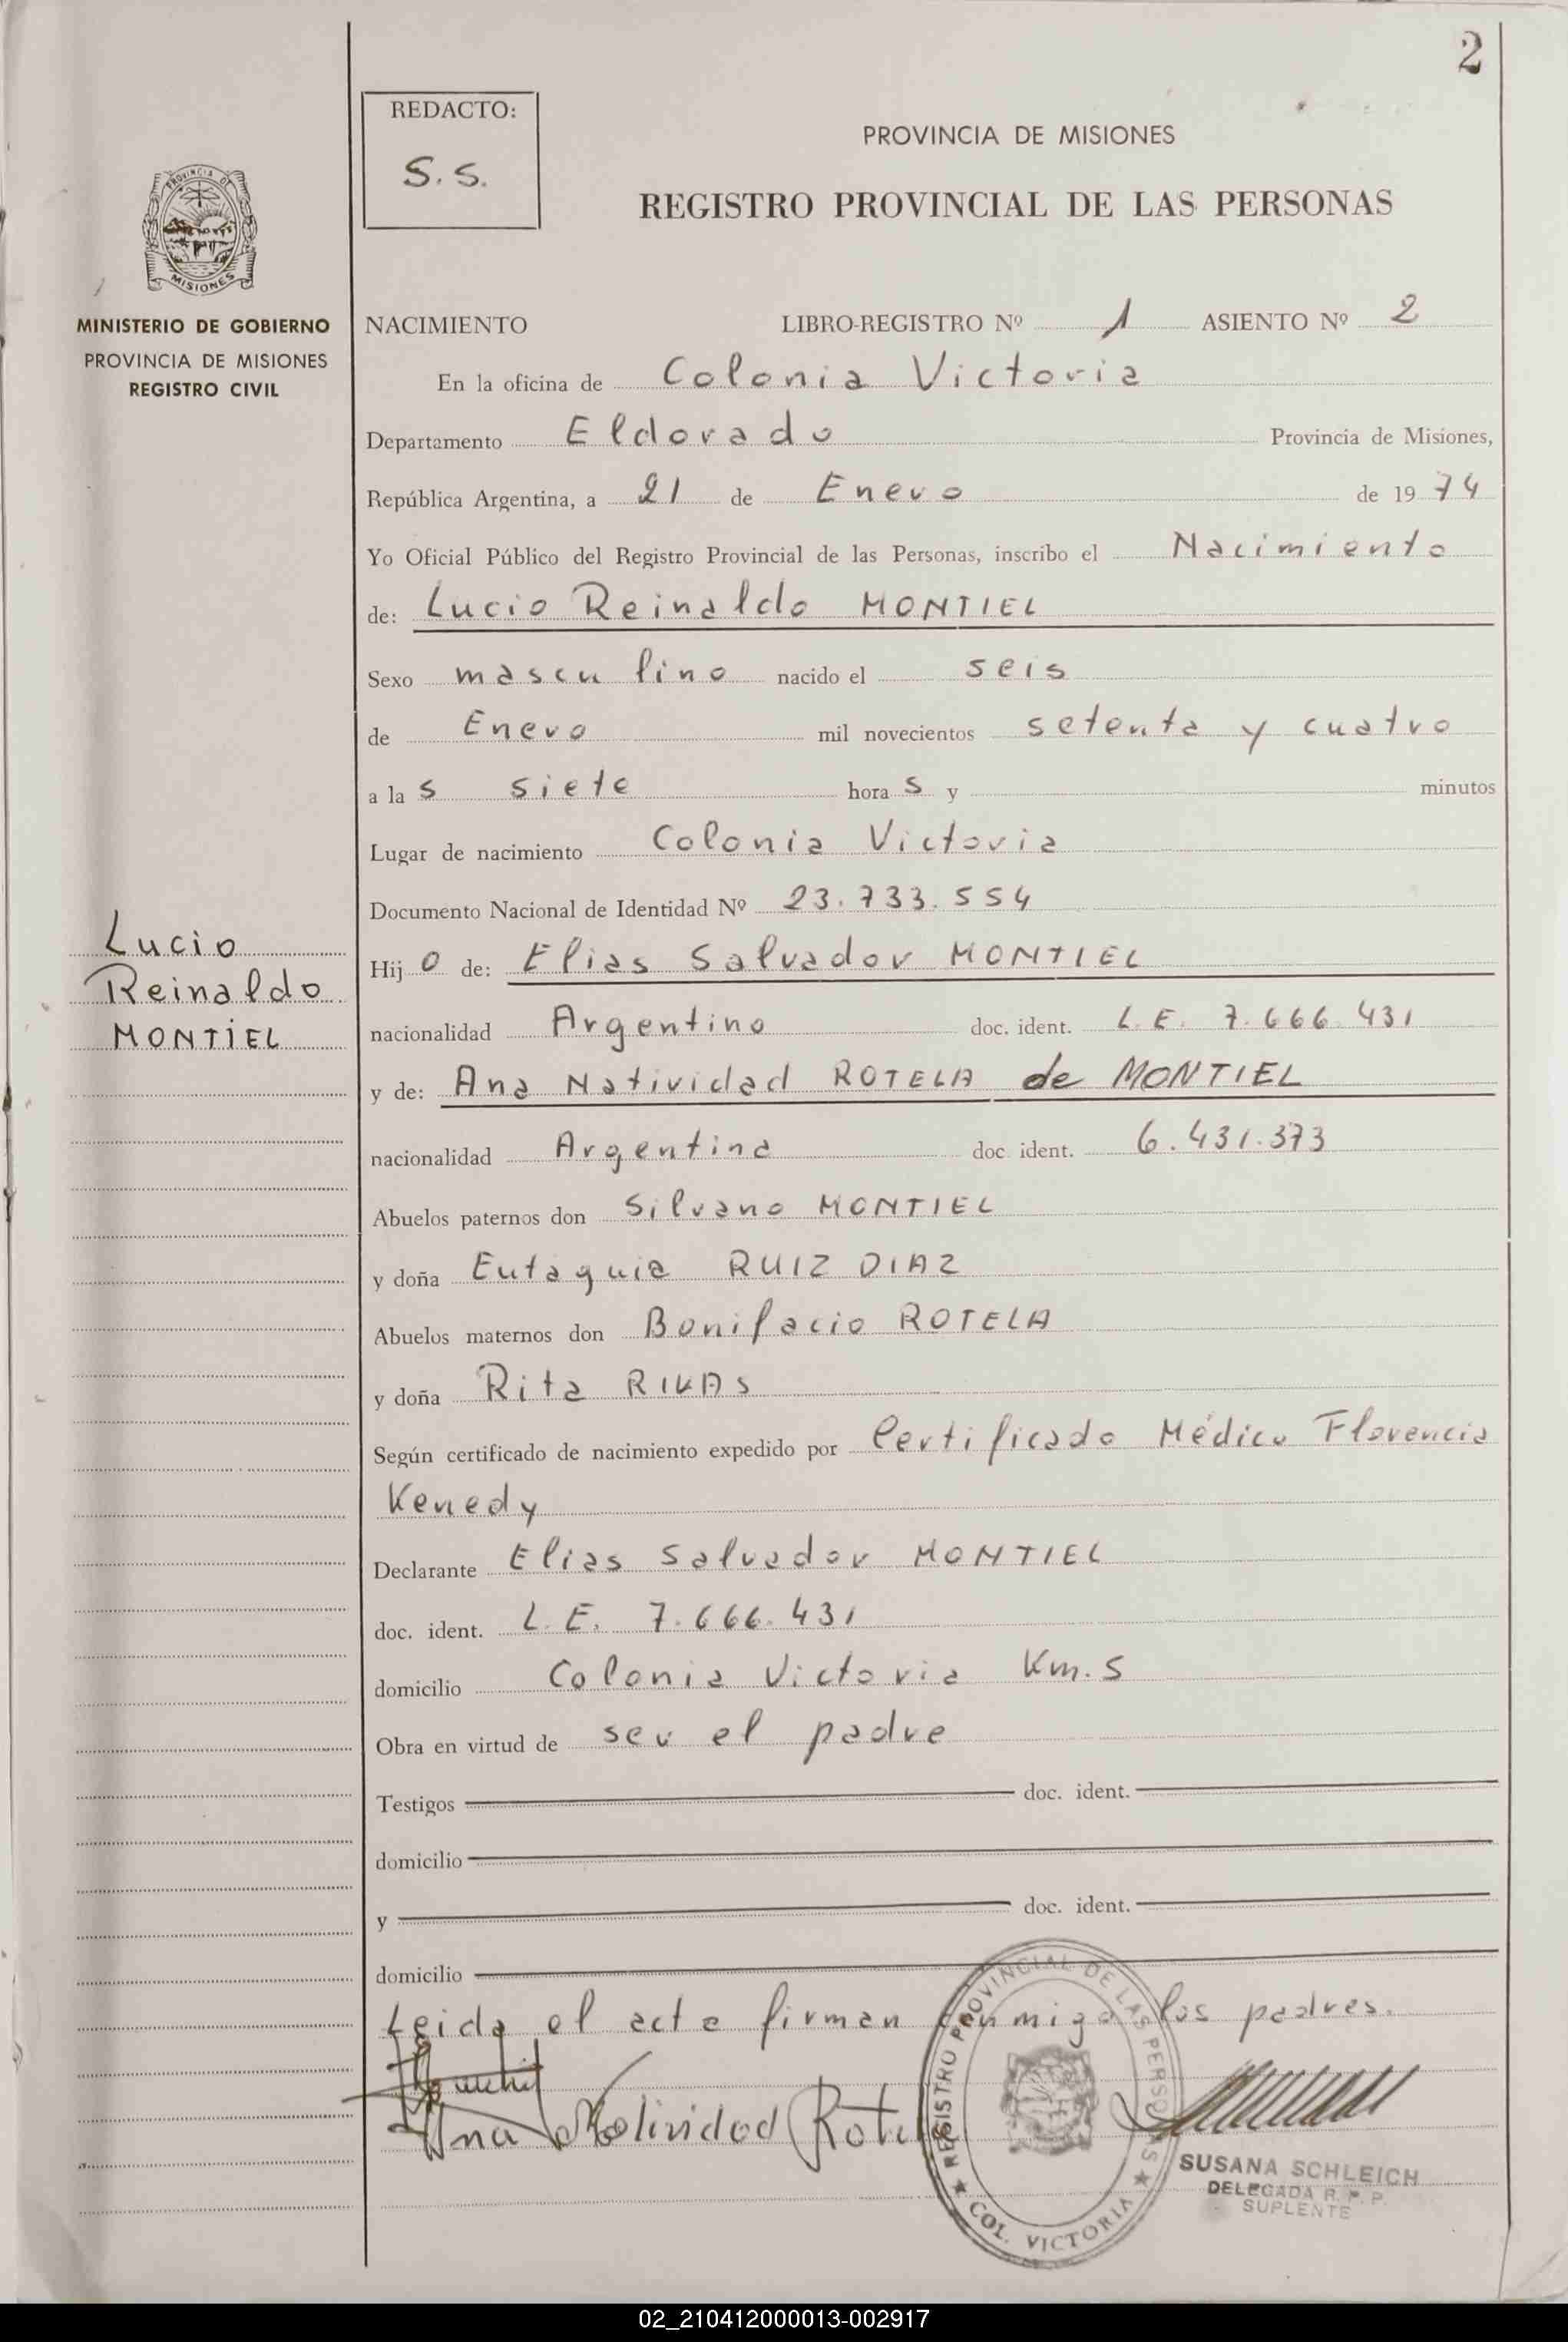 2
REDACTO:
S. S.
PROVINCIA DE MISIONES
REGISTRO PROVINCIAL DE LAS PERSONAS
PROVINCIA DE
MISIONES
MINISTERIO DE GOBIERNO
PROVINCIA DE MISIONES
REGISTRO CIVIL
NACIMIENTO LIBRO-REGISTRO Nº 1 ASIENTO Nº 2
En la oficina de Colonia Victoria
Departamento Eldorado Provincia de Misiones,
República Argentina, a 21 de Enero de 19 74
Yo Oficial Público del Registro Provincial de las Personas, inscribo el Nacimiento
de: Lucio Reinaldo MONTIEL
Sexo masculino nacido el seis
de Enero mil novecientos setenta y cuatro
a la s siete hora s y minutos
Lugar de nacimiento Colonia Victoria
Documento Nacional de Identidad Nº 23.733.554
Lucio
Reinaldo
MONTIEL
Hij o de: Elias Salvador MONTIEL
nacionalidad Argentino doc. ident. L. E. 7.666.431
y de: Ana Natividad ROTELA de MONTIEL
nacionalidad Argentina doc. ident. 6.431.373
Abuelos paternos don Silvano MONTIEL
y doña Eutaquia RUIZ DIAZ
Abuelos maternos don Bonifacio ROTELA
y doña Rita RIVAS
Según certificado de nacimiento expedido por Certificado Médico Florencia
Kenedy
Declarante Elias Salvador MONTIEL
doc. ident. L. E. 7.666.431
domicilio Colonia Victoria Km. 5
Obra en virtud de ser el padre
Testigos doc. ident.
domicilio
y doc. ident.
domicilio
Leida el acta firman conmigo los padres.
Ana Natividad Rotela
REGISTRO PROVINCIAL DE LAS PERSONAS
COL. VICTORIA
SUSANA SCHLEICH
DELEGADA R. P. P.
SUPLENTE
02_210412000013-002917